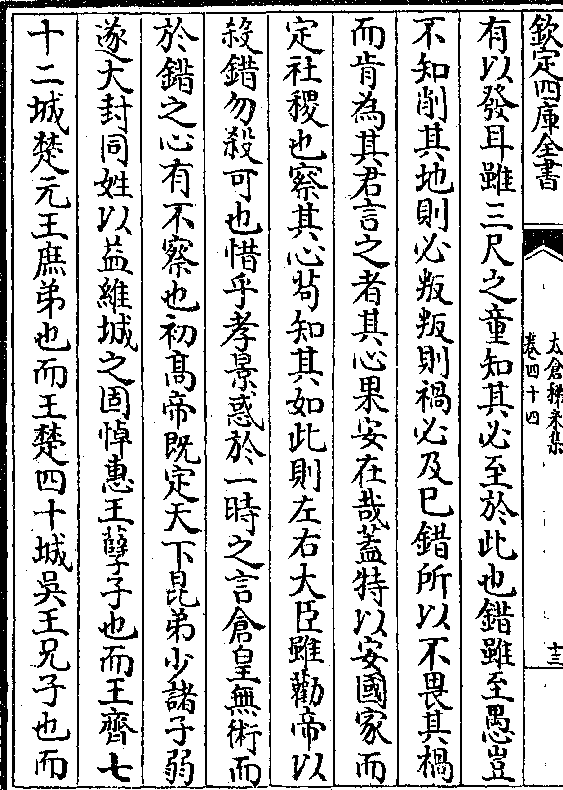 欽定四庫全書
太倉稊米集
卷四十四
十三
有以發耳雖三尺之童知其必至於此也錯雖至愚豈
不知削其地則必叛叛則禍必及已錯所以不畏其禍
而肯為其君言之者其心果安在哉蓋特以安國家而
定社稷也察其心茍知其如此則左右大臣雖勸帝以
殺錯勿殺可也惜乎孝景惑於一時之言倉皇無術而
於錯之心有不察也初髙帝既定天下昆弟少諸子弱
遂大封同姓以益維城之固悼惠王孽子也而王齊七
十二城楚元王庶弟也而王楚四十城吳王兄子也而